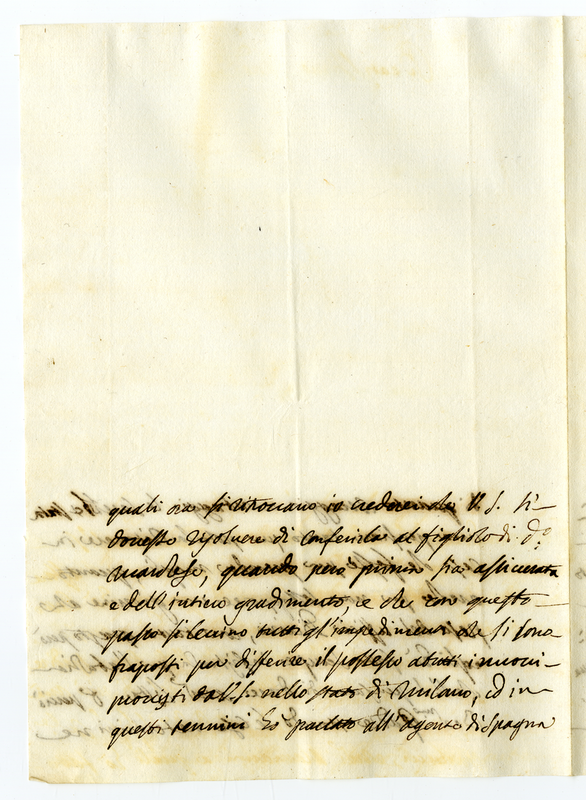 quali ora si ritoccano io crederei che V. S. si
dovesse risolvere di conferirla al figliolo di d.o
Marchese, quando però prima sia assicurata
e dell'intiero gradimento, e che con questo
passo si levino tutti gl'impedimenti che si sono
fraposti per differire il possesso a tutti i nuovi
provisti dall'S. nello stato di Milano, ed in
questi termini ho parlato all'Agente di Spagna